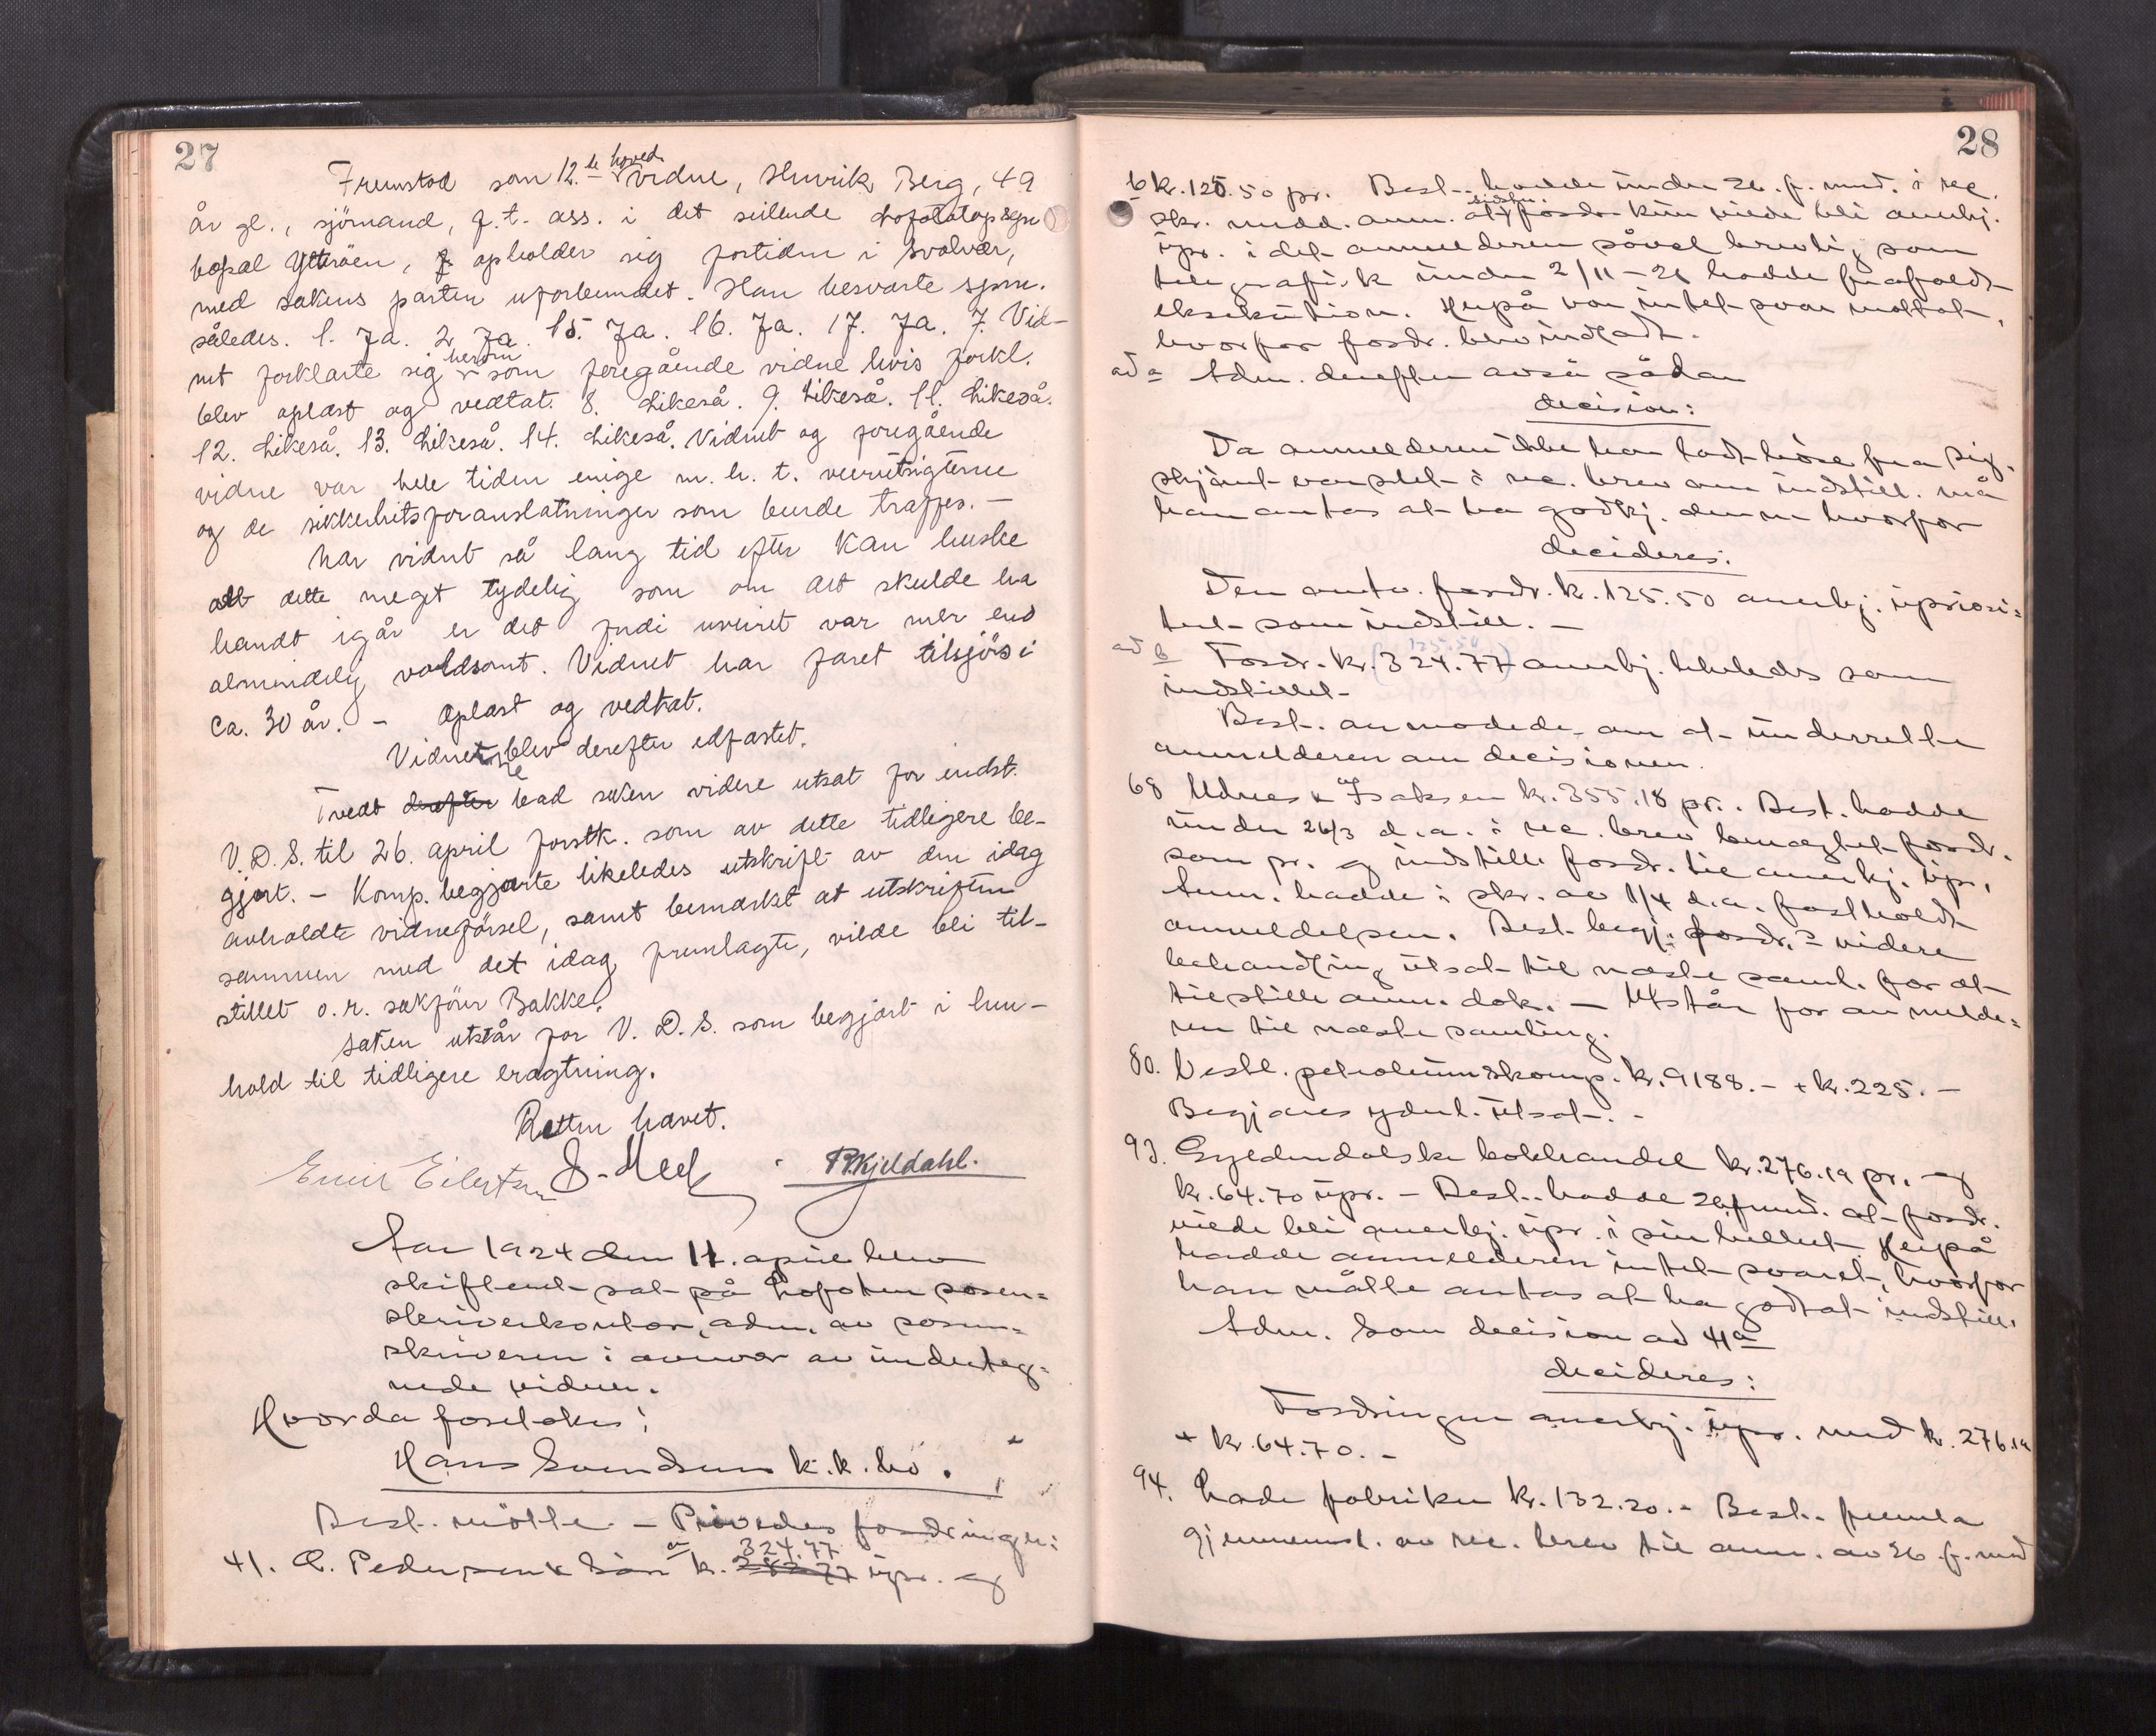 27
Fremstod som 12.te hoved vidne, Henrik Berg, 49
år gl., sjömand, f.t. ass. i det seilende Lofotopsyn
bopæl Ytteröen, opholder sig fortiden i Svolvær,
med sakens parter uforbundet. Han besvarte spm.
således. 1. Ja. 2. Ja. 15. Ja. 16. Ja. 17. Ja. 7. Vid-
net forklarte sig herom som foregående vidne hvis forkl.
blev oplæst og vedtat. 8. Likeså. 9. Likeså. 11. Likeså.
12. Likeså. 13. Likeså. 14. Likeså. Vidnet og foregående
vidne var hele tiden enige m. h. t. veirutsigterne
og de sikkerhetsforanstaltninger som burde træffes. –
Når vidnet så lang tid efter kan huske
alt dette meget tydelig som om det skulde ha
hændt igår er det fordi uveiret var mer end
almindelig voldsomt. Vidnet har faret tilsjös i
ca. 30 år. – Oplæst og vedtat.
Vidnerne blev derefter edfæstet.
Tvedt derefter bad saken videre utsat for indst.
V. D. S. til 26. april førstk. som av dette tidligere be-
gjært. – Komp. begjærte likeledes utskrift av den idag
avholdte vidneförsel, samt bemærket at utskriften
sammen med det idag fremlagte, vilde bli til-
stillet o.r. sakförer Bakke.
Saken utstår for V. D. S. som begjært i hen-
hold til tidligere eragtning.
Retten hævet.
Emil Eilertsen
P. Kjeldahl.
Aar 1924 den 11. april blev
skifteret sat på Lofoten soren-
skriverkontor, adm. av soren-
skriveren i nærvær av underteg-
nede vidner.
Hvorda foretokes:
Hans Svendsens k.k. bo.
Best. mötte. – Prövedes fordringer:
41. O. Pedersen & Sön a k. 324.77 282.77 upr. og
28
b kr. 125.50 pr. Best. hadde under 26. f. mnd. i rec.
skr. medd. anm. at sidstn. fordr. kun vilde bli anerkj.
upr. i det anmelderen såvel brevlig som
telegrafisk under 2/11-21 hadde frafaldt
eksekution. Herpå var intet svar mottat,
hvorfor fordr. blev indstadt.
ad a Adm. derefter avsa sådan
decision:
Da anmelderen ikke har latt höre fra sig,
skjönt varslet i rec. brev om indstill. må
han antas at ha godkj. denne hvorfor
decideres:
Den omtv. fordr. k. 125.50 anerkj. upriori-
tert som indstill. –
ad b Fordr. kr. (324.77) 125.50 anerkj. likeledes som
indstillet.
Best. anmodede om at underrette
anmelderen om decisionen.
68 Udnes & Isaksen kr. 355.18 pr. Best. hadde
under 26/3 d.a. i rec. brev benegtet fordr.
som pr. og indstille fordr. til anerkj. upr.
Anm. hadde i skr. av 1/4 d.a. fastholdt
anmeldelsen. Best. begj. fordr.s videre
behandling utsat til næste saml. for at
tilstille anm. dok. – Utstår for anmelde-
ren til næste samling.
80. Vestl. petroleumskomp. kr. 9188.– + kr. 225.–
Begjæres yderl. utsat. –
93. Gyldendalske bokhandel kr. 276.19 pr. og
kr. 64.70 upr. – Best. hadde 26 f. mnd. at fordr.
vilde bli anerkj. upr. i sin helhet. Herpå
hadde anmelderen intet svaret, hvorfor
han måtte antas at ha godtat indstill.
Adm. Som decision ad 41 a
decideres:
Fordringen anerkj. upr. med k. 276.19
+ kr. 64.70. –
94. Lade fabriker kr. 132.20. – Best. fremla
gjennemsl. av rec. brev til anm. av 26. f. mnd